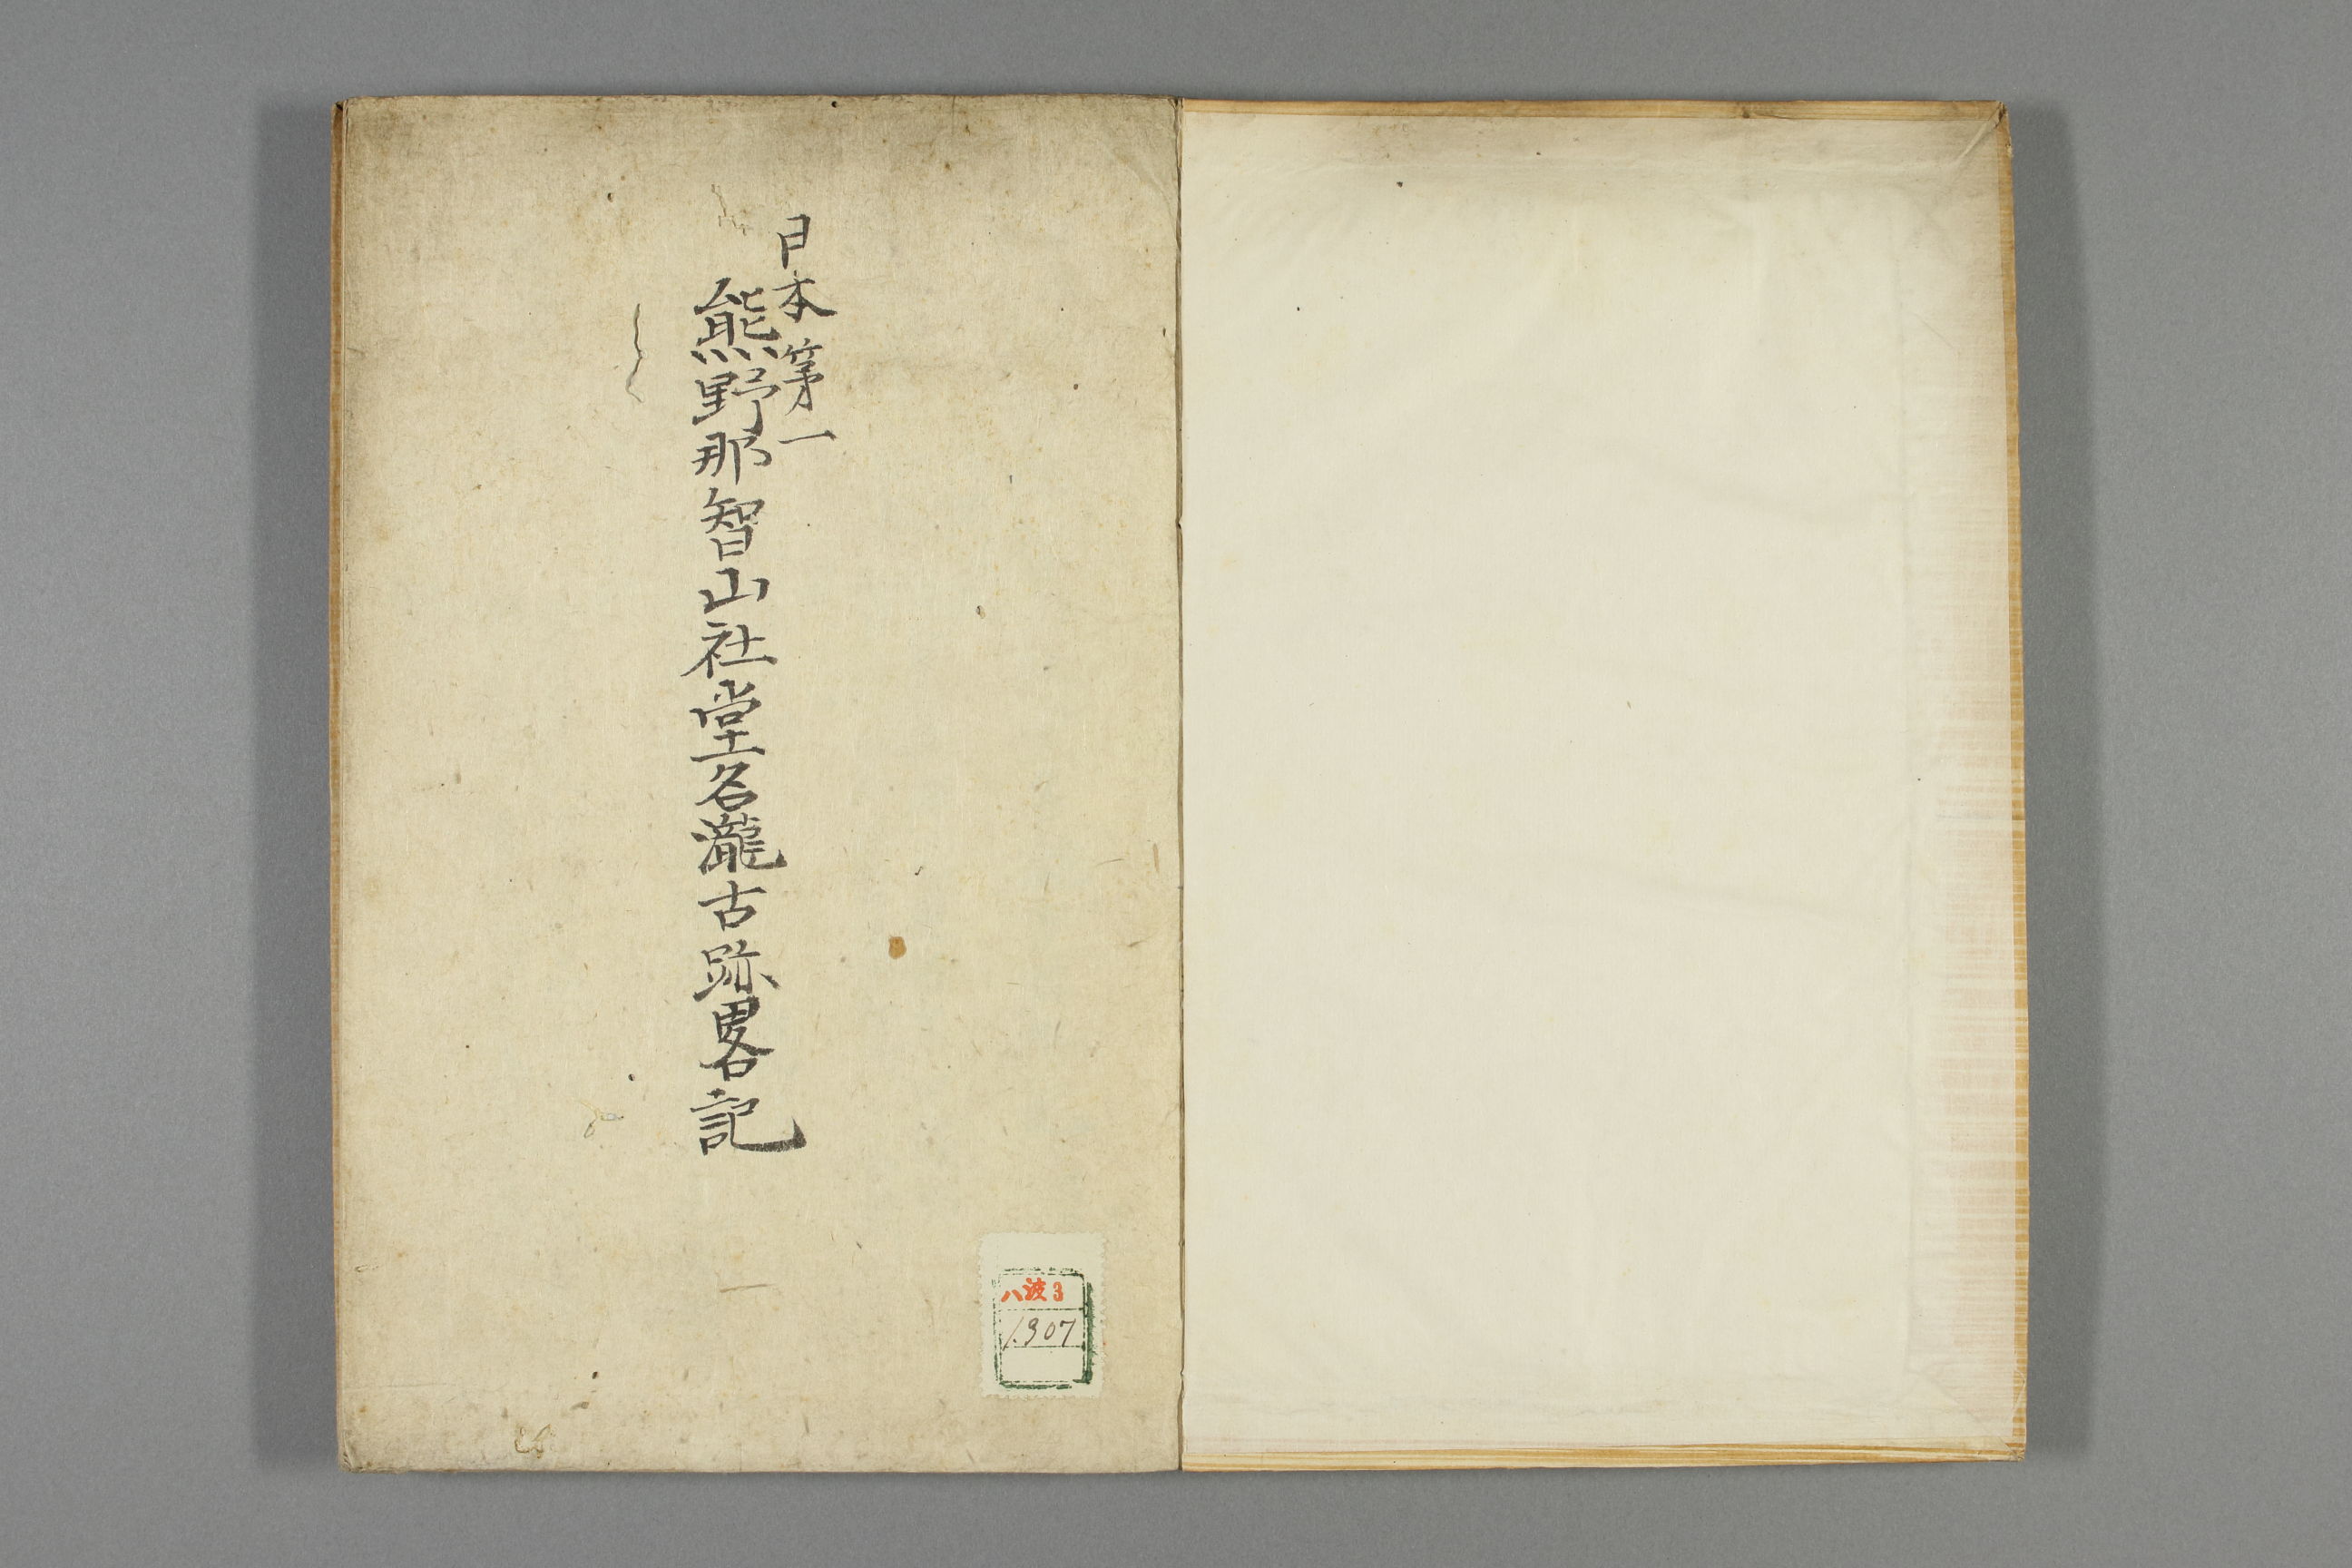 日本第一
熊野那智山社堂名瀧古跡畧記
八波3
1.307